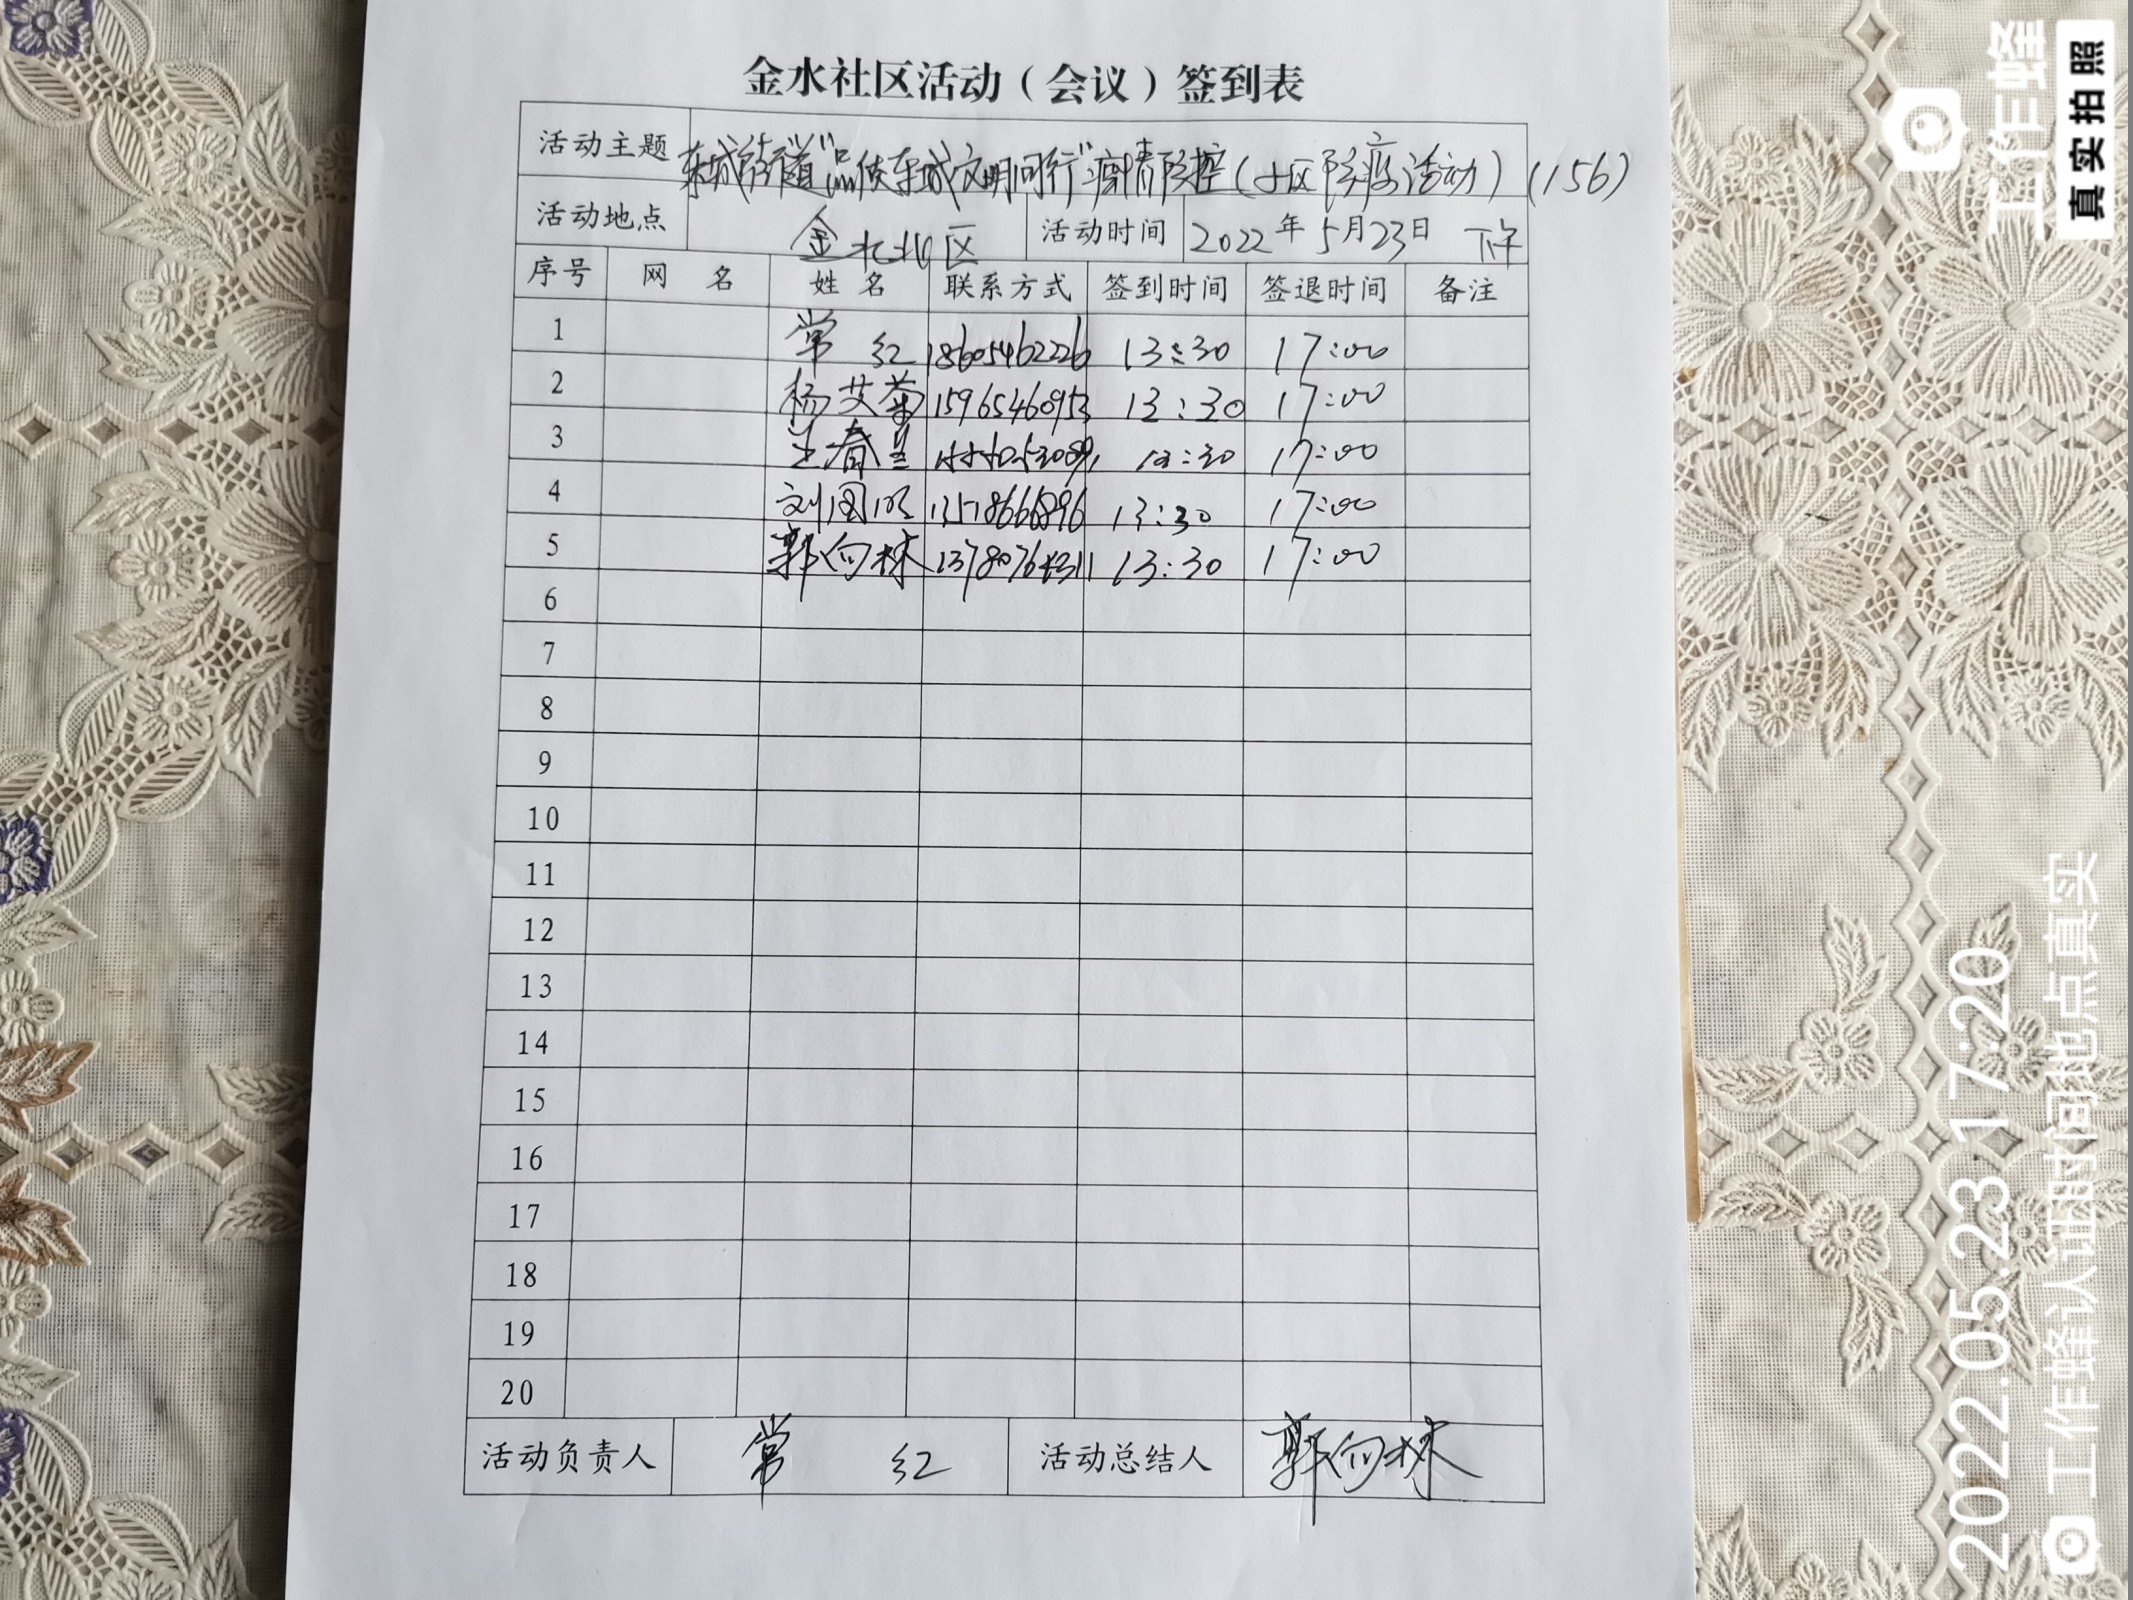 金水社区活动（会议）签到表
活动主题 东城街道"品质东城文明同行"疫情防控(小区防疫活动)(156)
活动地点 金水北区 活动时间 2022年5月23日 下午
序号 网 名 姓 名 联系方式 签到时间 签退时间 备注
1 常 红 18605462226 13:30 17:00
2 杨艾菊 15965460953 13:30 17:00
3 13:30 17:00
4 13:30 17:00
5 郭向林 13780764311 13:30 17:00
6
7
8
9
10
11
12
13
14
15
16
17
18
19
20
活动负责人 常 红 活动总结人 郭向林
工作蜂
真实拍照
2022.05.23 17:20
工作蜂认证时间地点真实